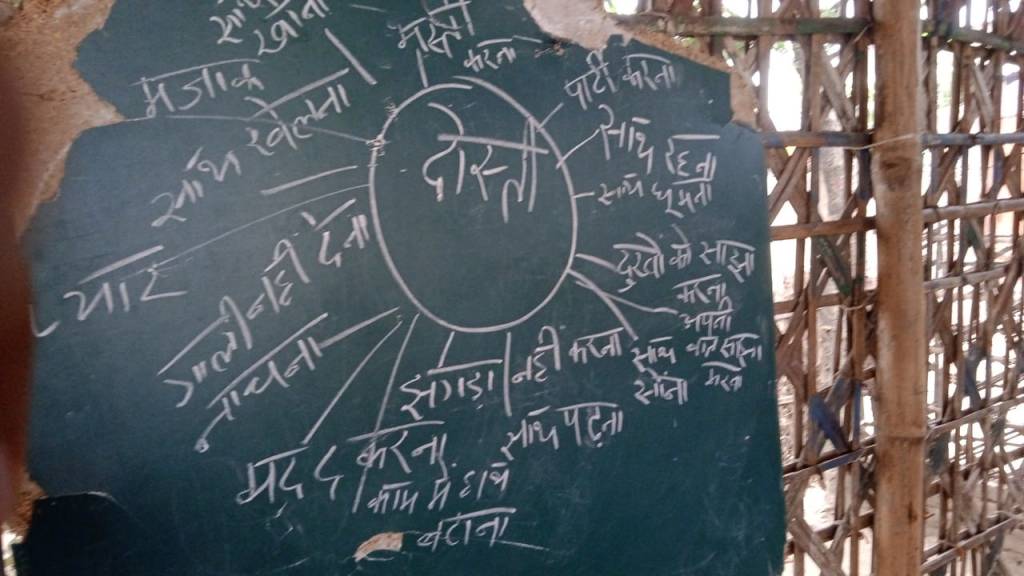 साथ
खाना
मस्ती
करना
पार्टी करना
मजाक
साथ खेलना
दोस्ती
साथ रहना
साथ घूमना
प्यार
गाली नही देना
नाचना
दुखों को साझा
करना
अपनी
बाते साझा
करना
साथ
सोना
झगड़ा नही करना
साथ पढ़ना
मदद करना
काम में हाथ
बटाना